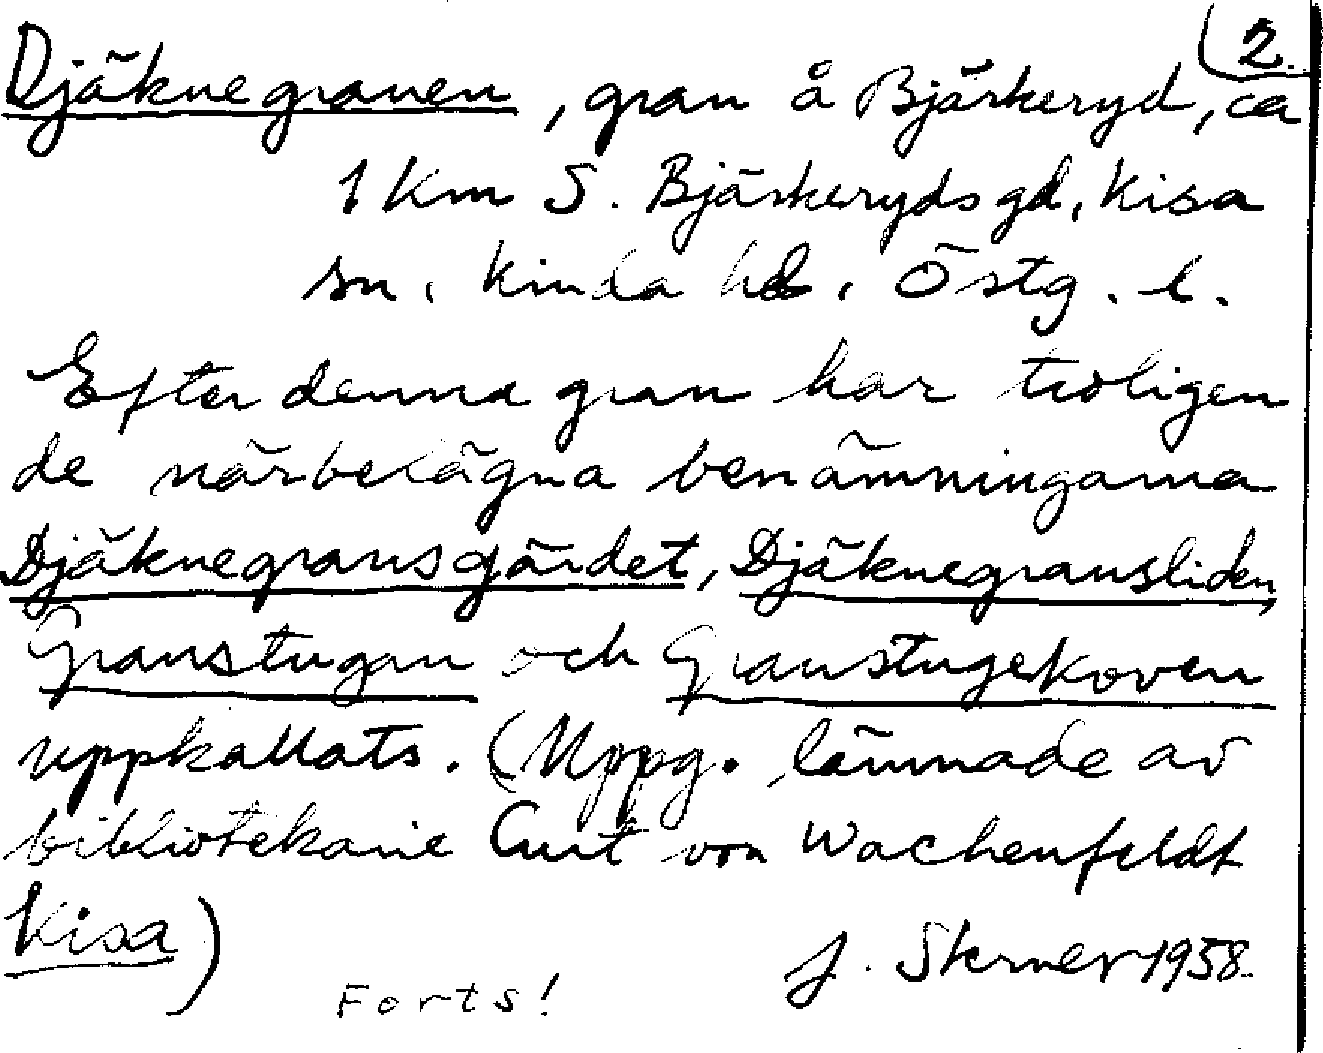 2.
Djäknegranen, gran å Bjärkeryd, ca
1 Km S. Bjärkeryds gd, Kisa
sn, Kinda hd, Östg. l.
Efter denna gran har troligen
de närbelägna benämningarna
Djäknegransgärdet, Djäknegransliden,
Granstugan och Granstugekoven
uppkallats. (Uppg. lämnade av
bibliotekarie Curt von Wachenfeldt
Kisa)
J. Skerner 1958.
Forts!